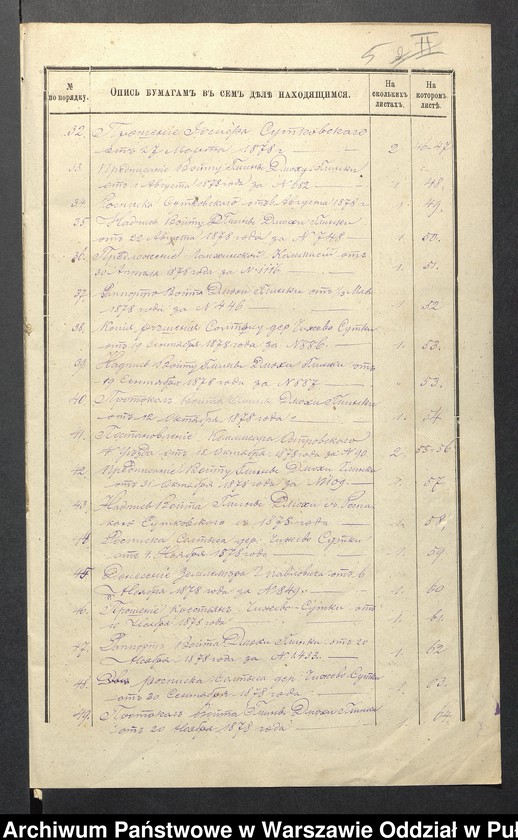 5 II
№ по порядку.
Опись бумагамъ въ семъ дѣлѣ находящимся.
На сколькихъ листахъ.
На которомъ листѣ.
32. Прошеніе Сутковскаго
отъ 27 Марта 1878 г. 2 46-47
33. Предписаніе Войту Гмины Дмохи Глинки
отъ 1 Августа 1878 года за № 612 1 48.
34. Росписка Сутковскаго отъ Августа 1878 г 1 49.
35. Надпись Войту Гмины Дмохи Глинки
отъ 22 Августа 1878 года за № 748 1. 50.
36. Предложеніе Коммисіи отъ
30 Апреля 1878 года за № 1116 1. 51.
37. Рапортъ Войта Дмохи Глинки отъ Мая
1878 года за № 446 1. 52
38. Копія рѣшенія Солтысу дер. Чижево Сутки
отъ 19 Сентября 1878 года за № 886. 1. 53.
39. Надпись Войту Гмины Дмохи Глинки отъ
19 Сентября 1878 года за № 887 53.
40. Протоколъ Войта Гмины Дмохи Глинки
отъ 12 Октября 1878 года 1. 54
41. Постановленіе Коммисара Островскаго
Уѣзда отъ 18 Октября 1878 года за № 90. 2. 55-56
42. Предписаніе Войту Гмины Дмохи Глинки
отъ 31 Октября 1878 года за № 1109. 57
43. Надпись Войта Гмины Дмохи съ Роспис
кою Сутковскаго съ 1878 года 58,
44 Росписка Солтыса дер. Чижево Сутки
отъ 1. Ноября 1878 года 1. 59
45 Донесеніе Землемѣра отъ 6
Ноября 1878 года за № 849. 1. 60
46. Прошеніе крестьянъ Чижево-Сутки отъ
Ноября 1878 года 1. 61.
47. Рапортъ Войта Дмохи Глинки отъ 20
Ноября 1878 года за № 1432. 1. 62
48. росписка Солтыса дер. Чижево Сутки
отъ 30 Сентября 1878 года 1. 63.
49. Протоколъ Войта Гмины Дмохи Глинки
отъ 20 Ноября 1878 года 64.
Archiwum Państwowe w Warszawie Oddział w Puł